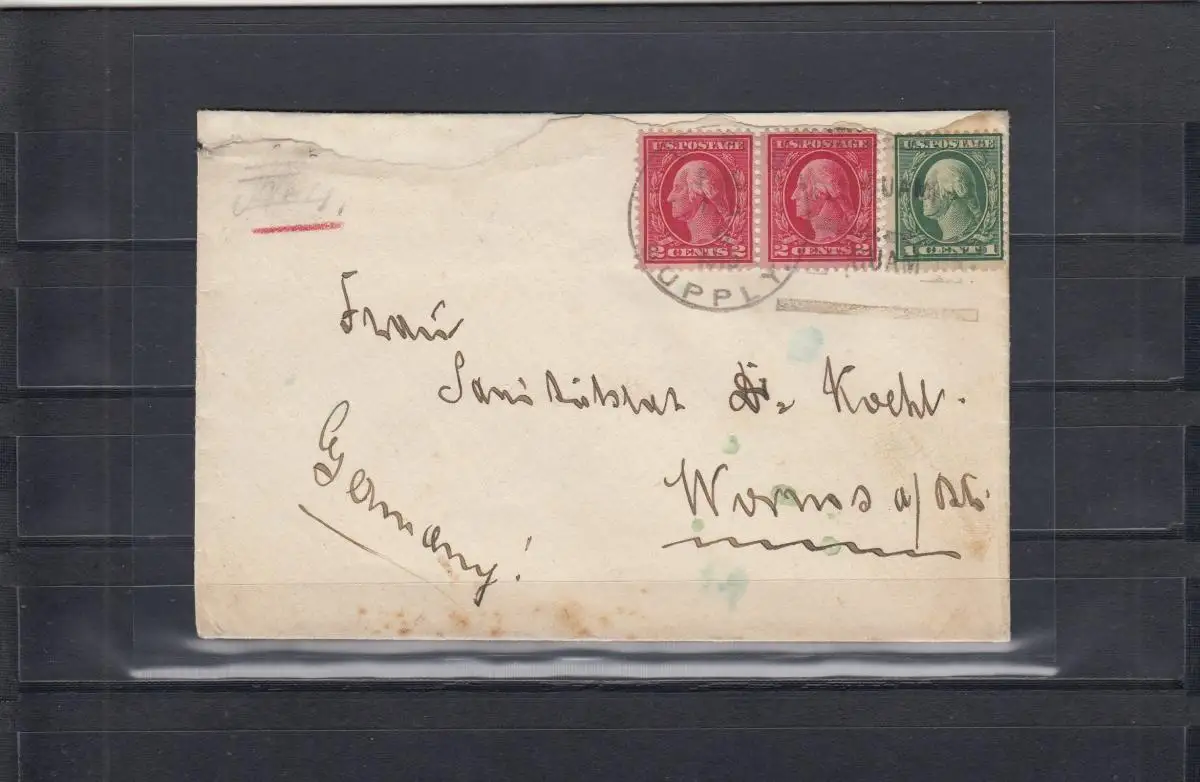 U.S. POSTAGE
2 CENTS 2
U.S. POSTAGE
2 CENTS 2
U.S. POSTAGE
1 CENT 1
SUPPLY
GUAM
GUAM
Frau
Sanitätsrat Dr. Koehl.
Worms a/Rh.
Germany!